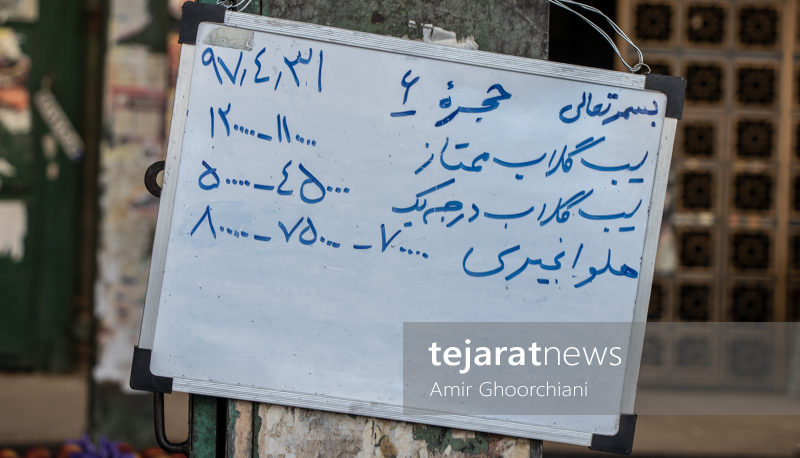 بسمه تعالی حجرهٔ ۶ ۹۷,۴,۳۱
سیب گلاب ممتاز ۱۱۰۰۰۰ - ۱۲۰۰۰۰
سیب گلاب درجه یک ۴۵۰۰۰ - ۵۰۰۰۰
هلو انجیری ۷۰۰۰۰ - ۷۵۰۰۰ - ۸۰۰۰۰
tejaratnews
Amir Ghoorchiani